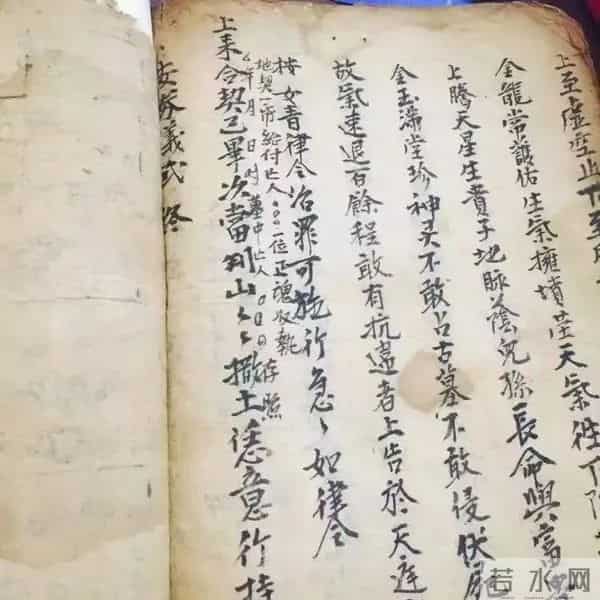 上至虛空止下至
金龍常護佑生氣擁墳塋天氣往下
上騰天星生貴子地脉蔭兒孫長命與富
金玉滿堂珍神灵不敢占古墓不敢侵伏屍
故氣速退百餘程敢有抗違者上告於天庭
按女青律令治罪可施行急〻如律令
地契一帋給付亡人○○○位正魂收執存照
年 月 日 时 墓中亡人
上来合契已畢次當別山〻撒土恁意行持
安葬義式終
若水网